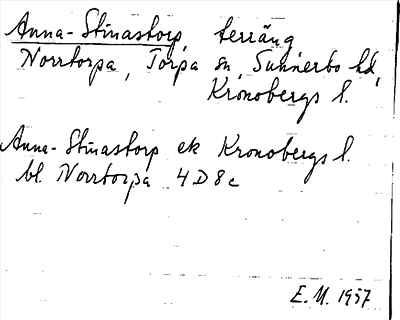 Anna-Stinastorp, terräng
Norrtorpa, Torpa sn, Sunnerbo hd,
Kronobergs l.
Anna-Stinastorp ek Kronobergs l.
bl. Norrtorpa 4D8c
E.M. 1957